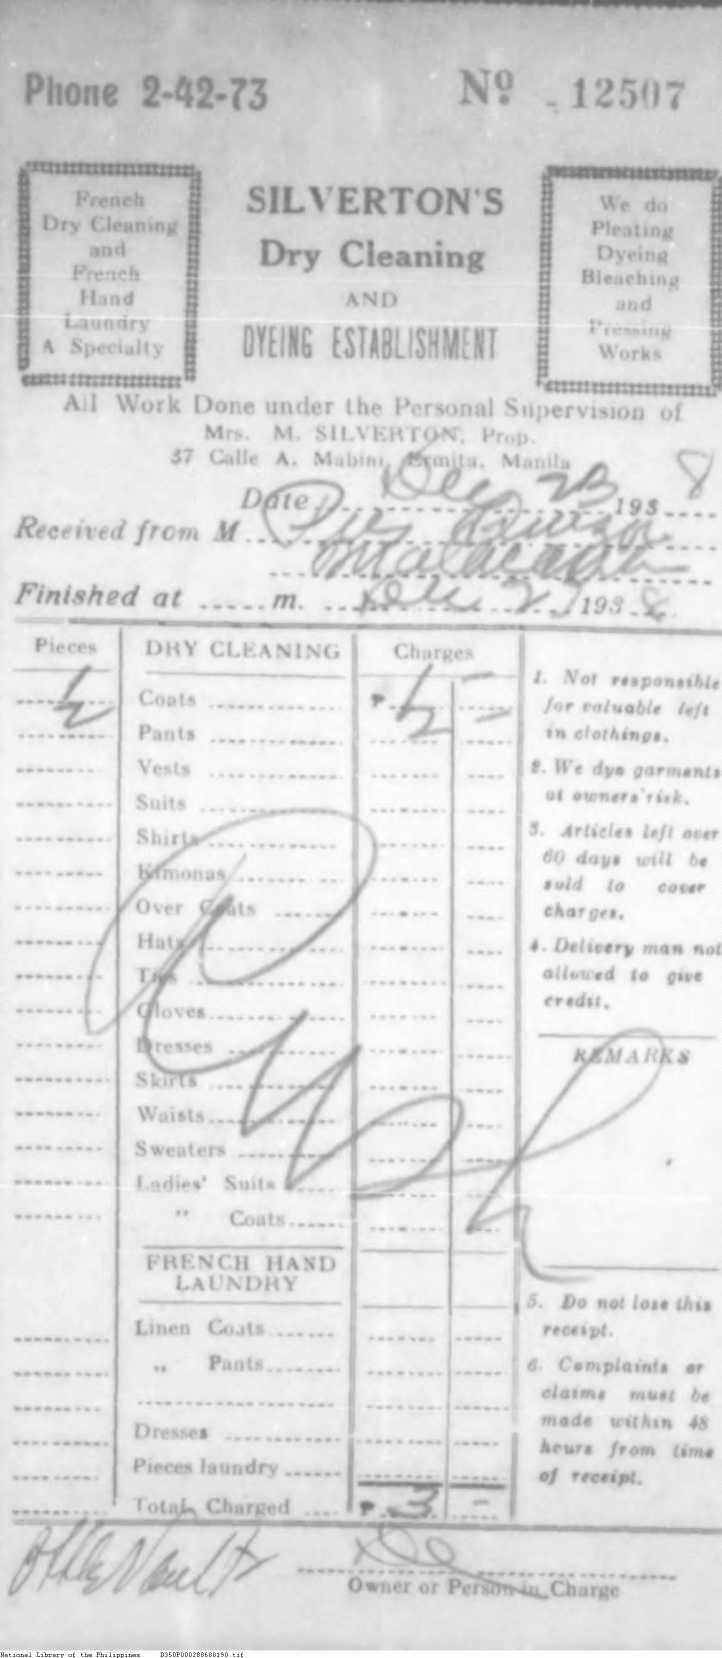 Phone 2-42-73
Nº - 12507
French
Dry Cleaning
and
French
Hand
Laundry
A Specialty
SILVERTON'S
Dry Cleaning
AND
DYEING ESTABLISHMENT
We do
Pleating
Dyeing
Bleaching
and
Pressing
Works
All Work Done under the Personal Supervision of
Mrs. M. SILVERTON, Prop.
37 Calle A. Mabini, Ermita, Manila
Date Dec 23 1938
Received from M
Finished at m. Dec 27 1938
Pieces
DRY CLEANING
Charges
Coats
Pants
Vests
Suits
Shirts
Kimonas
Over Coats
Hats
Ties
Gloves
Dresses
Skirts
Waists
Sweaters
Ladies' Suits
" Coats
FRENCH HAND
LAUNDRY
Linen Coats
" Pants
Dresses
Pieces laundry
Total Charged ₱ 3 -
1. Not responsible
for valuable left
in clothings.
2. We dye garments
at owners' risk.
3. Articles left over
60 days will be
sold to cover
charges.
4. Delivery man not
allowed to give
credit.
REMARKS
5. Do not lose this
receipt.
6. Complaints or
claims must be
made within 48
hours from time
of receipt.
Owner or Person in Charge
National Library of the Philippines D350P000288680190.tif